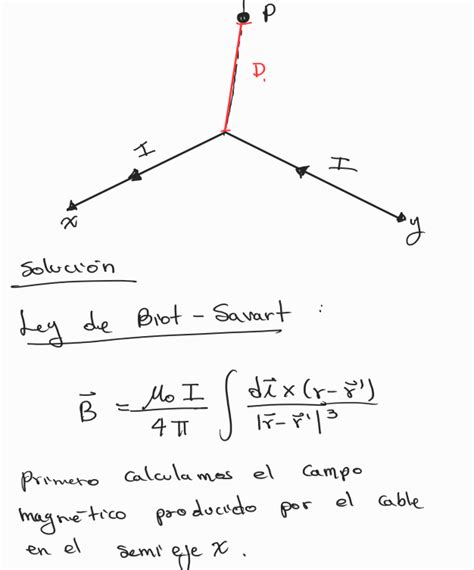 P
D.
I
I
x
y
Solución
Ley de Biot - Savart :
B⃗ = μ₀ I / 4π ∫ dl⃗ × (r - r⃗') / |r⃗ - r⃗'|³
Primero calculamos el campo
magnético producido por el cable
en el semi eje x.